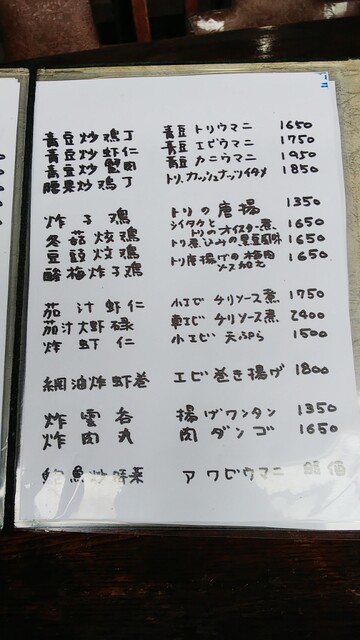 青豆炒鶏丁 青豆トリウマニ 1650
青豆炒虾仁 青豆エビウマニ 1750
青豆炒蟹肉 青豆カニウマニ 1950
腰果炒鶏丁 トリ、カッシュナッツイタメ 1850
炸子鶏 トリの唐揚 1350
冬菇炆鶏 シイタケとトリのオイスター煮 1650
豆豉炆鶏 トリ煮込みの黒豆風味 1650
酸梅炸子鶏 トリ唐揚げの梅肉ソース和え 1650
茄汁虾仁 小エビチリソース煮 1750
茄汁大虾碌 車エビチリソース煮 2400
炸虾仁 小エビ天ぷら 1500
網油炸虾巻 エビ巻き揚げ 1800
炸雲呑 揚げワンタン 1350
炸肉丸 肉ダンゴ 1650
鮑魚炒時菜 アワビウマニ 時価